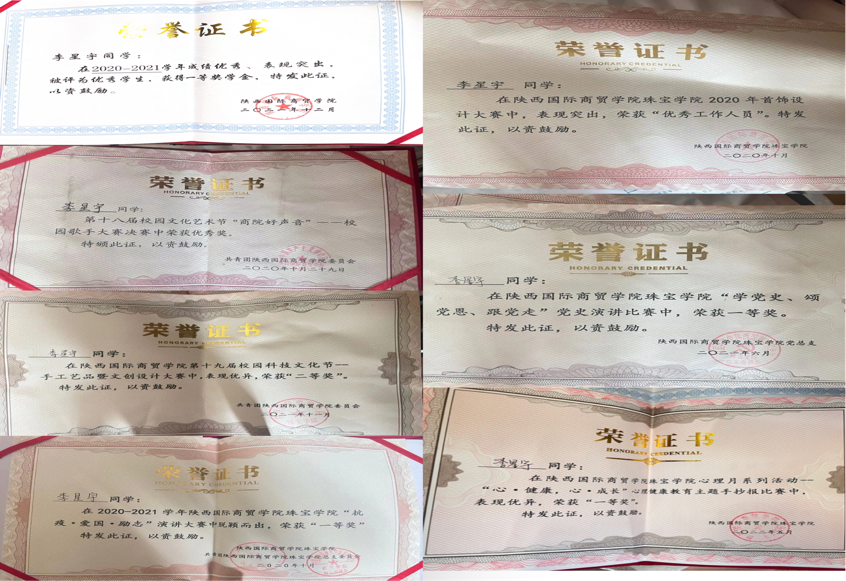 荣誉证书
李星宇同学：
在2020-2021学年成绩优秀、表现突出，
被评为优秀学生，获得一等奖学金，特发此证，
以资鼓励。
陕西国际商贸学院
二〇二一年十二月
荣誉证书
HONORARY CREDENTIAL
李星宇 同学：
第十八届校园文化艺术节“商院好声音”——校
园歌手大赛决赛中荣获优秀奖。
特颁此证，以资鼓励。
共青团陕西国际商贸学院委员会
二〇二〇年十月二十九日
荣誉证书
李星宇 同学：
在陕西国际商贸学院第十九届校园科技文化节——
手工艺品暨文创设计大赛中，表现优异，荣获“二等奖”。
特发此证，以资鼓励。
共青团陕西国际商贸学院委员会
二〇二一年十一月
荣誉证书
HONORARY CREDENTIAL
李星宇 同学：
在2020-2021学年陕西国际商贸学院珠宝学院“抗
疫·爱国·励志”演讲大赛中脱颖而出，荣获“一等奖”
特发此证，以资鼓励。
陕西国际商贸学院珠宝学院
共青团陕西国际商贸学院珠宝学院总支委员会
二〇二〇年十月
荣誉证书
HONORARY CREDENTIAL
李星宇 同学：
在陕西国际商贸学院珠宝学院2020年首饰设
计大赛中，表现突出，荣获“优秀工作人员”。特发
此证，以资鼓励。
陕西国际商贸学院珠宝学院
二〇二〇年十月
荣誉证书
HONORARY CREDENTIAL
李星宇 同学：
在陕西国际商贸学院珠宝学院“学党史、颂
党恩、跟党走”党史演讲比赛中，荣获一等奖。
特发此证，以资鼓励。
陕西国际商贸学院珠宝学院党总支
二〇二一年六月
荣誉证书
HONORARY CREDENTIAL
李星宇 同学：
在陕西国际商贸学院珠宝学院心理月系列活动——
“心·健康，心·成长”心理健康教育主题手抄报比赛中，
表现优异，荣获“一等奖”。
特发此证，以资鼓励。
陕西国际商贸学院珠宝学院
二〇二二年五月